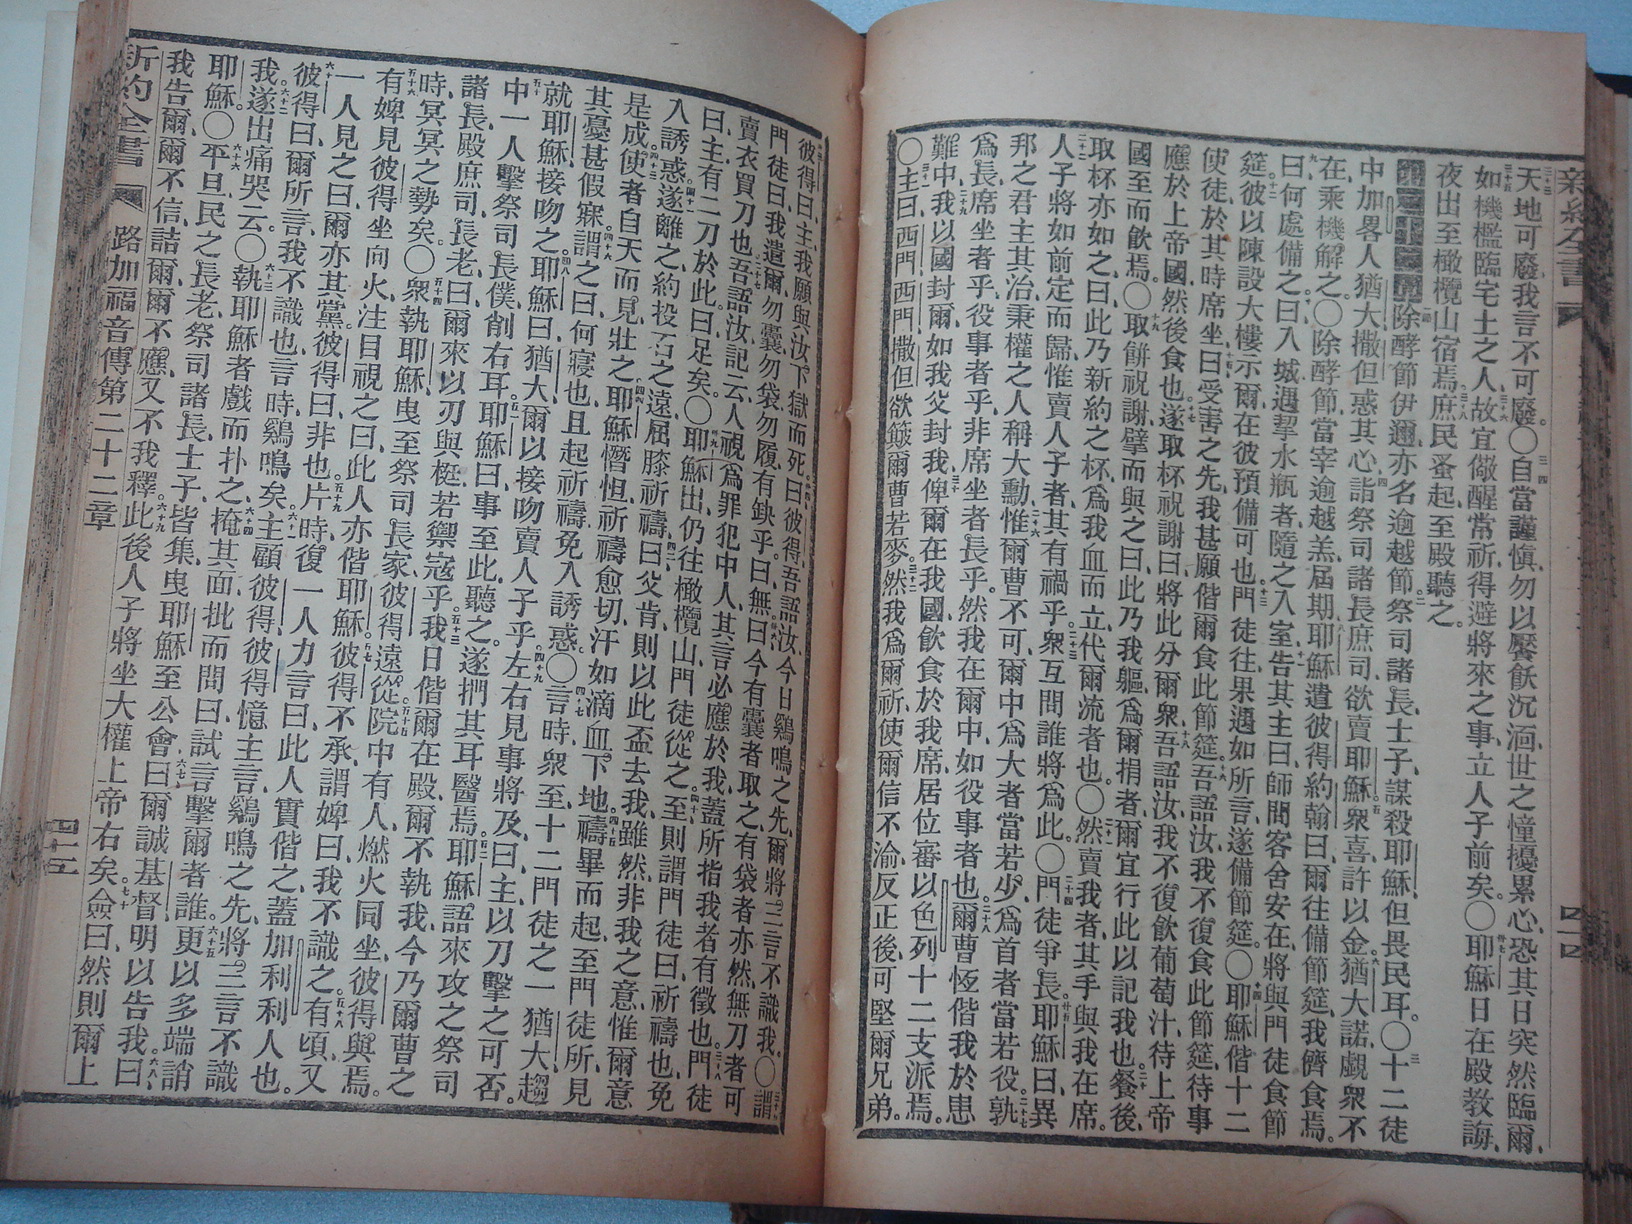 新約全書
四十四
天地可廢、我言不可廢。〇自當謹愼、勿以饜飫沉湎、世之憧擾累心、恐其日突然臨爾、
如機檻臨宅土之人、故宜儆醒常祈、得避將來之事、立人子前矣。〇耶穌日在殿教誨、
夜出至橄欖山宿焉、庶民蚤起、至殿聽之。
除酵節伊邇、亦名逾越節、祭司諸長士子、謀殺耶穌、但畏民耳。〇十二徒
中加畧人猶大、撒但惑其心、詣祭司諸長庶司、欲賣耶穌、衆喜、許以金、猶大諾、覷衆不
在、乘機解之。〇除酵節當宰逾越羔、屆期、耶穌遣彼得約翰曰、爾往備節筵、我儕食焉。
曰、何處備之、曰、入城遇挈水瓶者、隨之入室、告其主曰、師問客舍安在、將與門徒食節
筵、彼以陳設大樓示爾、在彼預備可也、門徒往、果遇如所言、遂備節筵。〇耶穌偕十二
使徒、於其時席坐、曰、受害之先、我甚願偕爾食此節筵、吾語汝、我不復食此節筵、待事
應於上帝國、然後食也、遂取杯祝謝曰、將此分爾衆、吾語汝、我不復飲葡萄汁、待上帝
國至而飲焉。〇取餅祝謝、擘而與之、曰、此乃我軀、爲爾捐者、爾宜行此以記我也、餐後、
取杯亦如之、曰、此乃新約之杯、爲我血而立、代爾流者也。〇然賣我者、其手與我在席。
人子將如前定而歸、惟賣人子者、其有禍乎、衆互問誰將爲此。〇門徒爭長、耶穌曰、異
邦之君主其治、秉權之人稱大勳、惟爾曹不可、爾中爲大者、當若少、爲首者、當若役、孰
爲長、席坐者乎、役事者乎、非席坐者長乎、然我在爾中、如役事者也、爾曹恆偕我於患
難中、我以國封爾、如我父封我、俾爾在我國、飲食於我席、居位審以色列十二支派焉。
〇主曰、西門、西門、撒但欲簸爾曹若麥、然我爲爾祈、使爾信不渝、反正後、可堅爾兄弟。
彼得曰、主、我願與汝下獄而死、曰、彼得、吾語汝、今日鷄鳴之先、爾將三言不識我。〇謂
門徒曰、我遣爾、勿囊、勿袋、勿履、有缺乎、曰、無、曰、今有囊者取之、有袋者亦然、無刀者、可
賣衣買刀也、吾語汝、記云、人視爲罪犯中人、其言必應於我、蓋所指我者有徵也、門徒
曰、主、有二刀於此、曰、足矣。〇耶穌出、仍往橄欖山、門徒從之、至則謂門徒曰、祈禱也、免
入誘惑、遂離之、約投石之遠、屈膝祈禱曰、父肯、則以此盃去我、雖然、非我之意、惟爾意
是成、使者自天而見、壯之、耶穌憯怛、祈禱愈切、汗如滴血下地、禱畢而起、至門徒所、見
其憂甚假寐、謂之曰、何寢也、且起祈禱、免入誘惑。〇言時、衆至、十二門徒之一猶大趨
就耶穌接吻之、耶穌曰、猶大、爾以接吻賣人子乎、左右見事將及、曰、主、以刀擊之可否。
中一人擊祭司長僕、削右耳、耶穌曰、事至此、聽之、遂捫其耳醫焉、耶穌語來攻之祭司
諸長殿庶司、長老、曰、爾來以刃與梃、若禦寇乎、我日偕爾在殿、爾不執我、今乃爾曹之
時、冥冥之勢矣。〇衆執耶穌、曳至祭司長家、彼得遠從、院中有人燃火同坐、彼得與焉。
有婢見彼得坐向火、注目視之、曰、此人亦偕耶穌、彼得不承、謂婢曰、我不識之、有頃、又
一人見之、曰、爾亦其黨、彼得曰、非也、片時、復一人力言曰、此人實偕之、蓋加利利人也。
彼得曰、爾所言、我不識也、言時鷄鳴矣、主顧彼得、彼得憶主言、鷄鳴之先、將三言不識
我、遂出痛哭云。〇執耶穌者戲而扑之、掩其面、批而問曰、試言擊爾者誰、更以多端誚
耶穌。〇平旦、民之長老、祭司諸長士子、皆集、曳耶穌至公會、曰、爾誠基督、明以告我、曰、
我告爾、爾不信、詰爾、爾不應、又不我釋、此後人子將坐大權上帝右矣、僉曰、然則爾上
新約全書
路加福音傳第二十二章
四十五